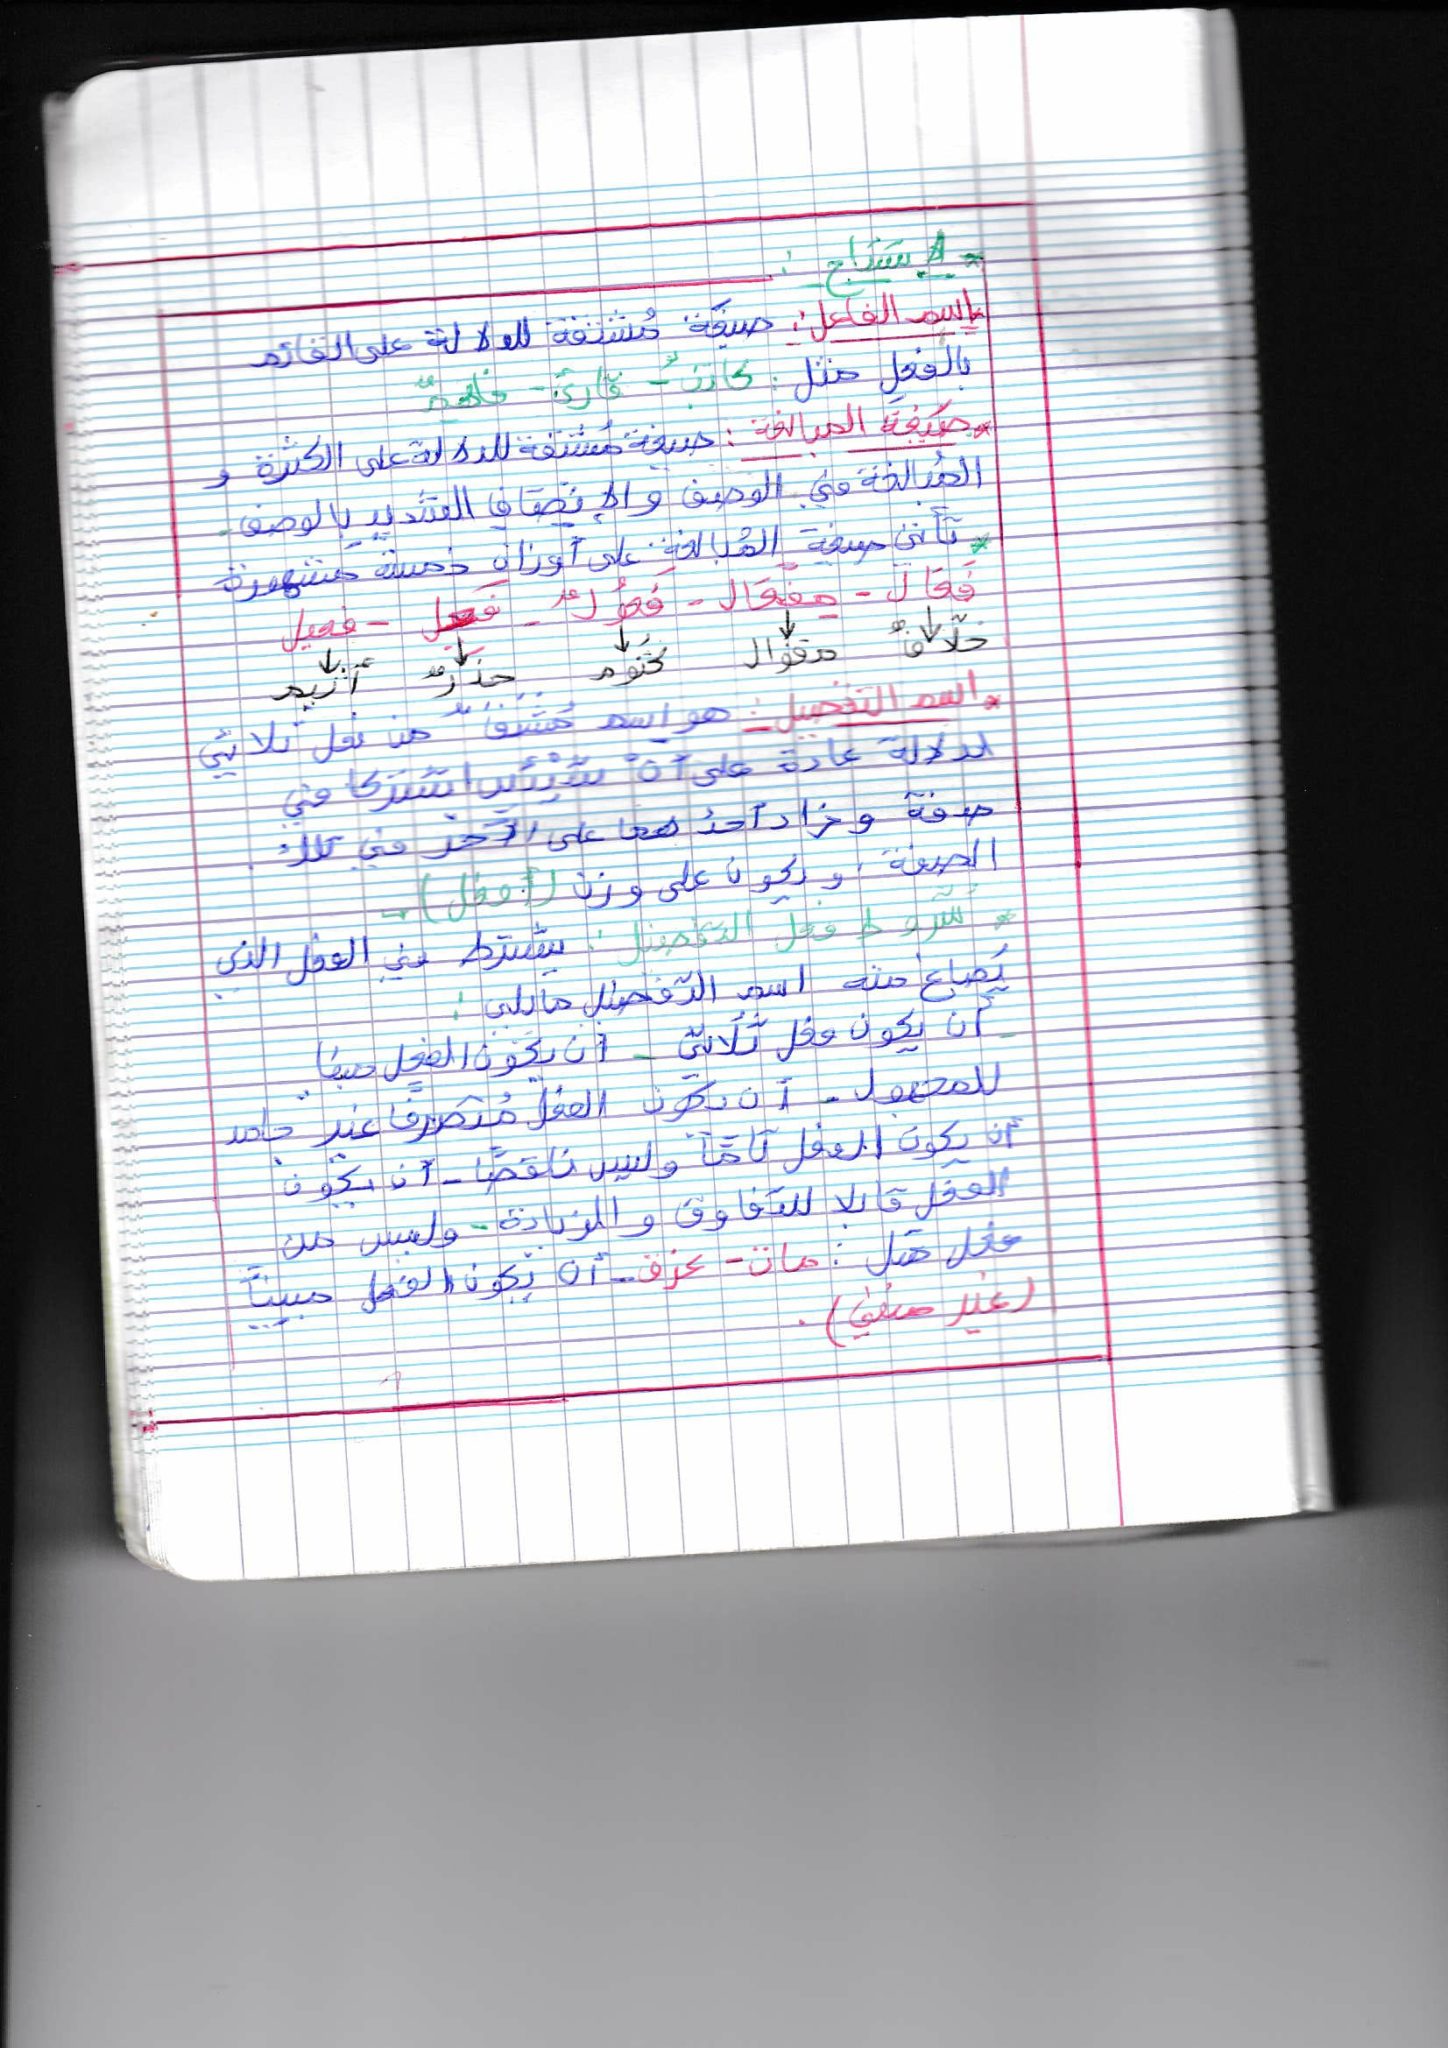 * الاستنتاج :
* اسم الفاعل : صيغة مُشتقة للدلالة على القائم
بالفعلِ مثل : كاتبٌ - قارئ - فاهمٌ
* صيغة المبالغة : صيغة مُشتقة للدلالة على الكثرة و
المُبالغة في الوصف والإتصافِ الشديدِ بالوصف
* تأتي صيغة المُبالغة على أوزان خمسة مشهورة
فَعّال - مِفْعَال - فَعُولٌ - فَعِل - فعيل
خلّافٌ مقوال كَتوم حذرٌ أثيم
* اسم التفضيل : هو اسم مُشتقٌ من فعل ثلاثي
لدلالة عادة على أنّ شيْئَينِ اشتركا في
صفة وزاد أحدُهما على الآخر في تلك
الصفة ، ويكون على وزن (أفعل)
* شروط فعل التفضيل : يشترط في الفعل الذي
يُصاغ منه اسم التّفضيل مايلي :
- أن يكون فعل ثُلاثيّ - أن يكون الفعل مبنيًا
للمجهول - أن يكون الفعل مُتصرفًا غير جامد
أن يكون الفعل تامًّا وليس ناقصًا - أن يكون
الفعل قابلا للتّفاوت والزيادة - وليس من
فعل مثل : مات - غرق - أن يكون الفعل مبنيًا
(غير منفي) .